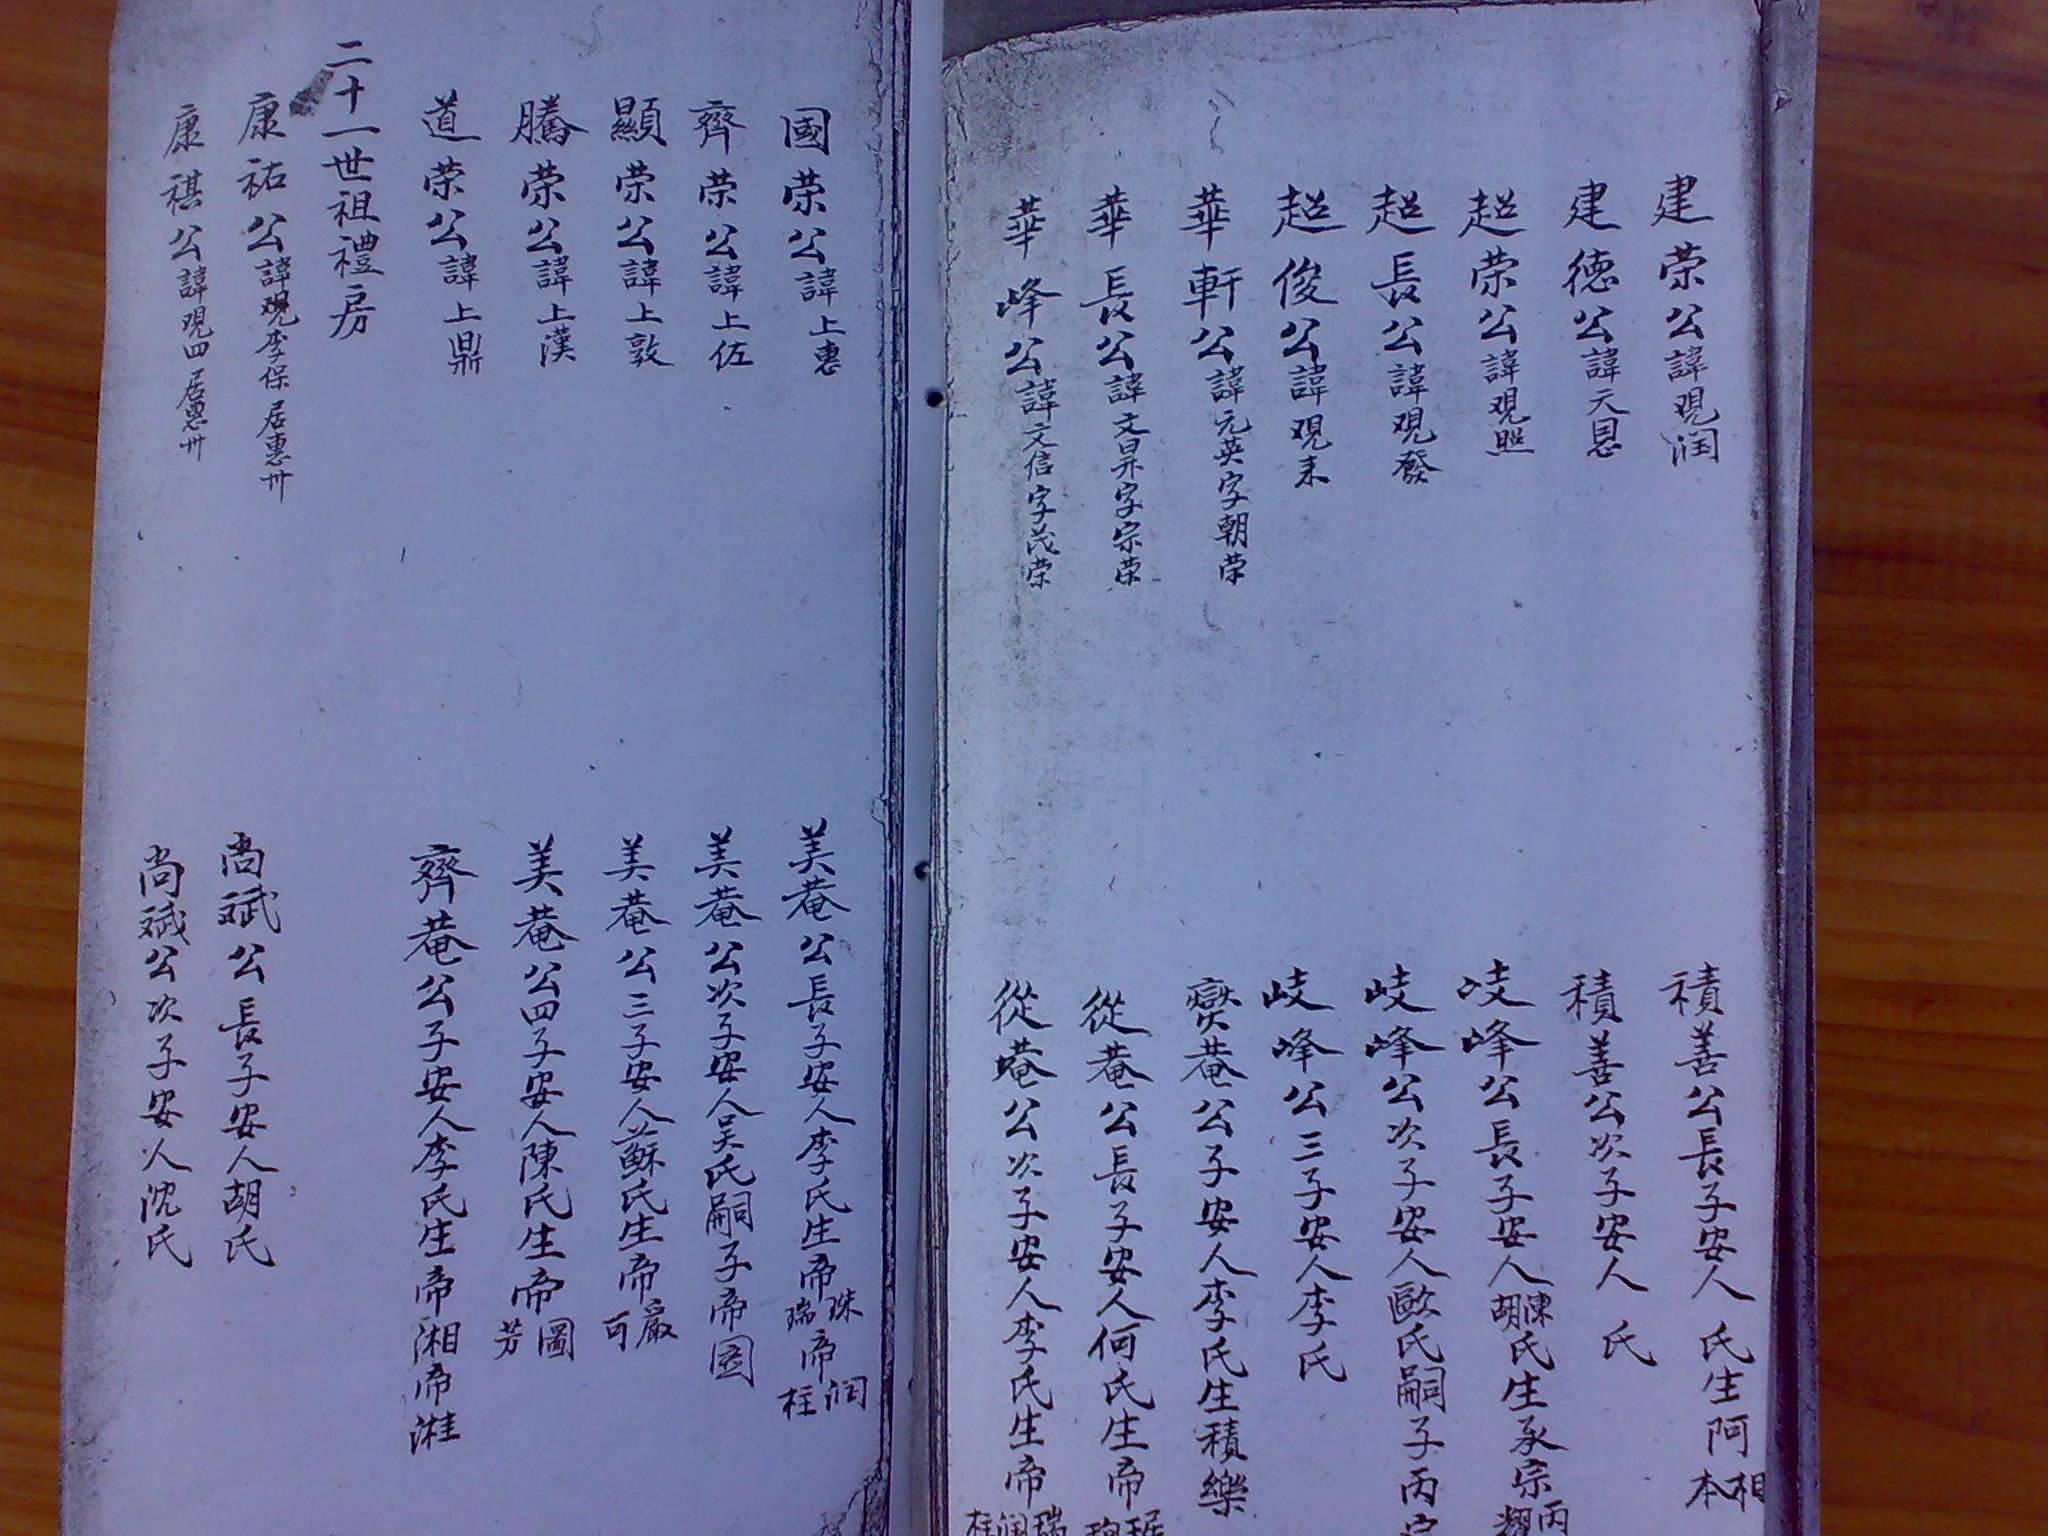 建荣公諱观润 積善公長子安人 氏生阿相本
建德公諱天恩 積善公次子安人 氏
超荣公諱观照 岐峰公長子安人陳胡氏生承宗丙耀
超長公諱观發 岐峰公次子安人歐氏嗣子丙
超俊公諱观来 岐峰公三子安人李氏
華軒公諱元英字朝荣 奕菴公子安人李氏生積樂
華長公諱文昇字宗荣 從菴公長子安人何氏生帝琚
華峰公諱文信字茂荣 從菴公次子安人李氏生帝瑞润柱
國荣公諱上惠 美菴公長子安人李氏生帝珠瑞帝润柱
齊荣公諱上佐 美菴公次子安人吴氏嗣子帝图
顯荣公諱上敦 美菴公三子安人蘇氏生帝嚴可
騰荣公諱上漢 美菴公四子安人陳氏生帝圖芳
道荣公諱上鼎 齊菴公子安人李氏生帝湘帝淮
二十一世祖禮房
康祐公諱观李保居惠卅 尚斌公長子安人胡氏
康祺公諱观四居惠卅 尚斌公次子安人沈氏